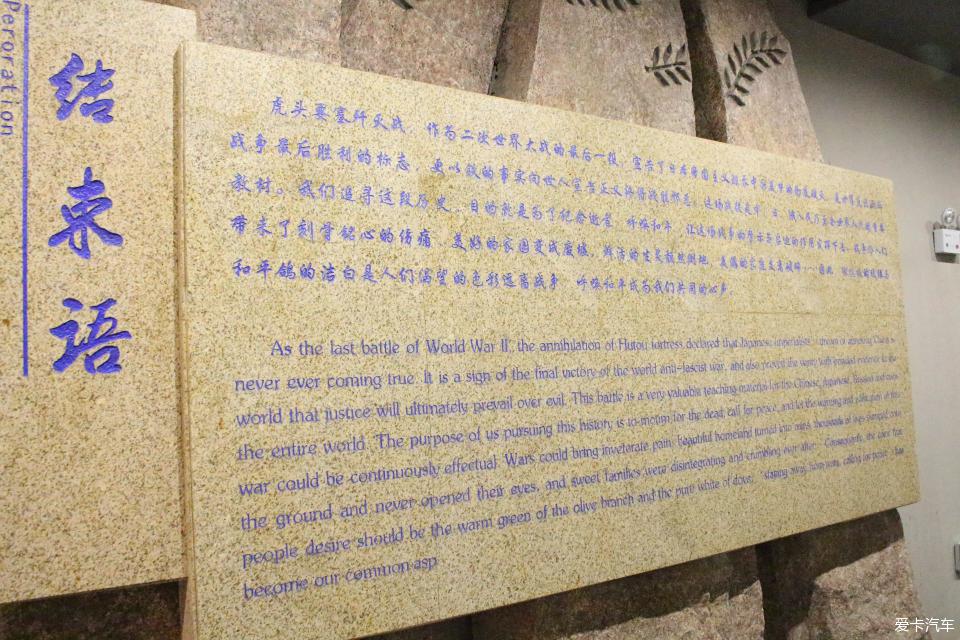 Peroration
结束语
虎头要塞歼灭战，作为二次世界大战的最后一役，宣告了日本帝国主义
战争最后胜利的标志，更以铁的事实向世人宣告正义终将战胜邪恶。
教材。我们追寻这段历史，目的就是为了纪念逝者，呼唤和平，让这场战争的警示
带来了刻骨铭心的伤痛，美好的家园变成废墟，鲜活的生灵
和平鸽的洁白是人们渴望的色彩远离战争 呼唤和平成为我们共同的心声。
As the last battle of World War II, the annihilation of Hutou fortress declared that Japanese imperialists' dream of annexing China is
never ever coming true. It is a sign of the final victory of the world anti-fascist war, and also proved the world with evidence to the
world that justice will ultimately prevail over evil. This battle is a very valuable teaching material for the Chinese, Japanese, Russian and even
the entire world. The purpose of us pursuing this history is to mourn for the dead, call for peace, and let the warning and of this
war could be continuously effectual. Wars could bring inveterate pain, beautiful homeland turned into ruins, thousands of lives slumped onto
the ground and never opened their eyes, and sweet families were disintegrating and crumbling ever after. Consequently, the color that
people desire should be the warm green of the olive branch and the pure white of dove; "staying away from wars, calling for peace" has
become our common asp
爱卡汽车